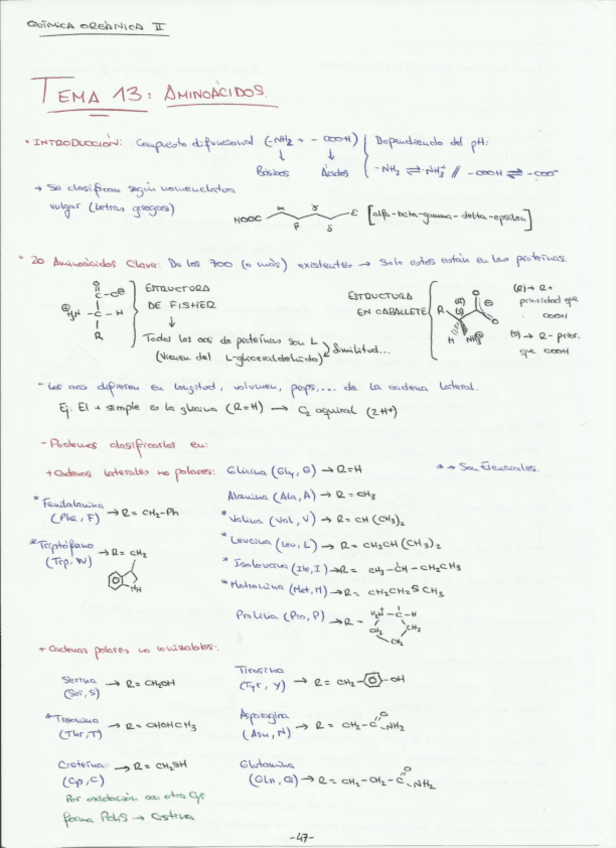 QUÍMICA ORGÁNICA II
TEMA 13: AMINOÁCIDOS.
• INTRODUCCIÓN: Compuesto difuncional (-NH2 + -COOH) Dependiendo del pH:
Básicos Ácidos -NH2 ⇌ -NH3+ // -COOH ⇌ -COO-
→ Se clasifican según nomenclatura
vulgar (Letras griegas)
HOOC α β γ δ ε [alfa-beta-gamma-delta-epsilon]
• 20 Aminoácidos Clave: De los 700 (o más) existentes → Solo estos están en las proteínas.
ESTRUCTURA
DE FISHER
O
C - O⊖
⊕H3N - C - H
R
Todos los aas de proteínas son L
(Vienen del L-gliceraldehido)
Similitud...
ESTRUCTURA
EN CABALLETE
R (R) (S) O O⊖
H NH3⊕
(R) → R+
prioridad que
COOH
(S) → R- prior.
que COOH
- Los aas difieren en longitud, volumen, props,... de la cadena lateral.
Ej: El + simple es la glicina (R=H) → C2 aquiral (2H+)
- Podemos clasificarlos en:
+ Cadenas laterales no polares: Glicina (Gly, G) → R=H
* → Son Esenciales.
* Fenilalanina
(Phe, F) → R= CH2-Ph
* Triptófano
(Trp, W) → R= CH2
NH
Alanina (Ala, A) → R= CH3
* Valina (Val, V) → R= CH(CH3)2
* Leucina (Leu, L) → R= CH2CH(CH3)2
* Isoleucina (Ile, I) → R= CH3-CH-CH2CH3
* Metionina (Met, M) → R= CH2CH2SCH3
Prolina (Pro, P) → R= H2N - C - H
CH2 CH2 CH2
+ Cadenas polares no ionizables:
Serina
(Ser, S) → R= CH2OH
* Treonina
(Thr, T) → R= CHOHCH3
Cisteína
(Cys, C) → R= CH2SH
Por oxidación con otra Cys
forma PdteS → Cistina
Tirosina
(Tyr, Y) → R= CH2- -OH
Asparagina
(Asn, N) → R= CH2-C O NH2
Glutamina
(Gln, Q) → R= CH2-CH2-C O NH2
-47-